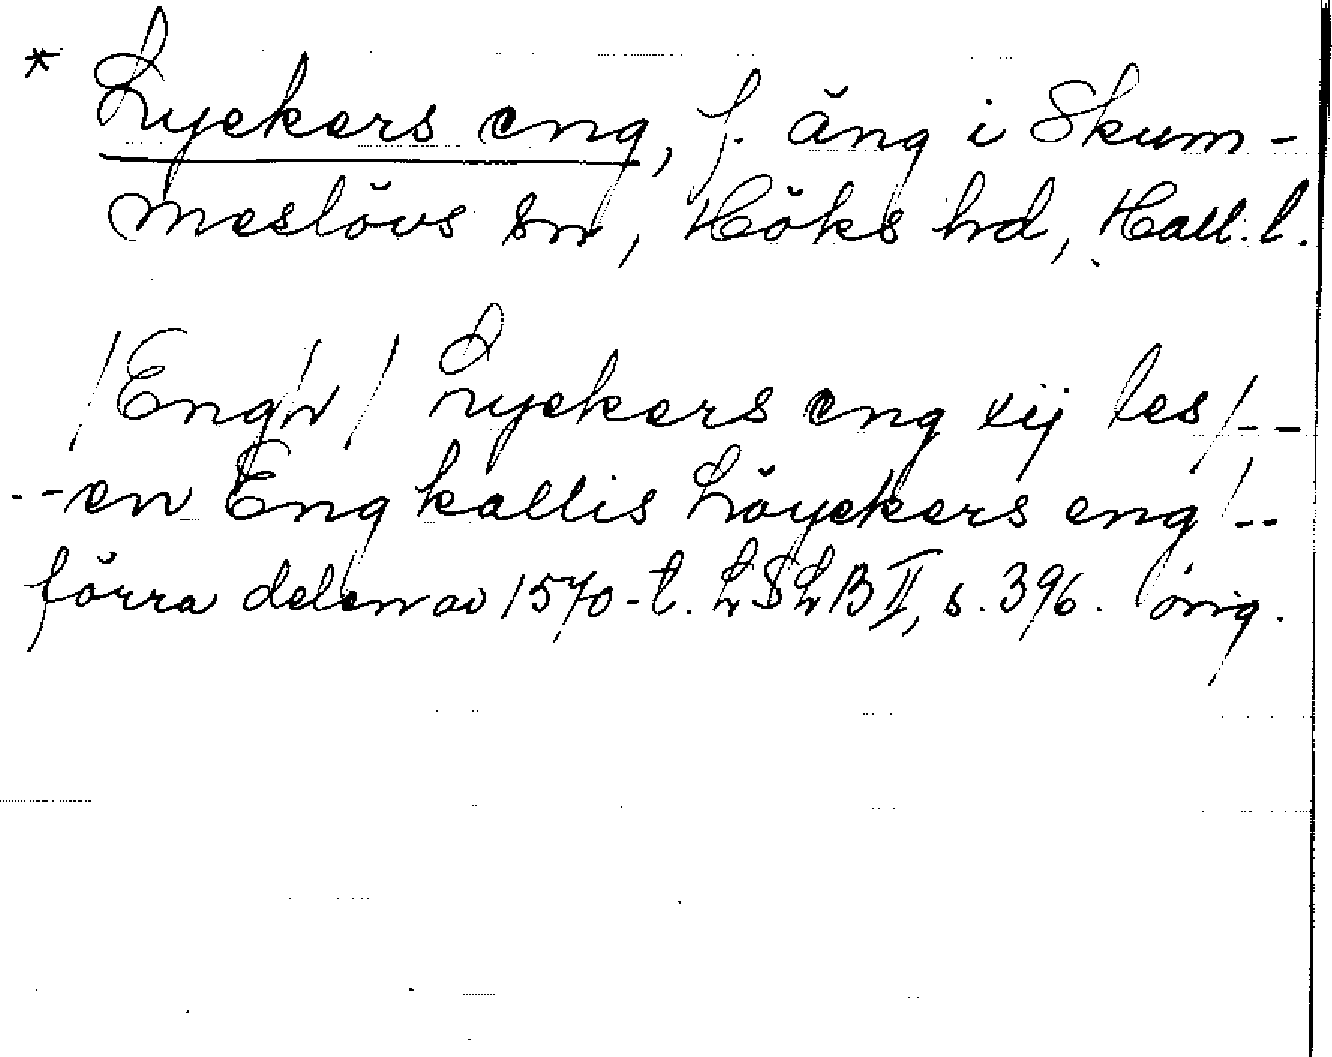 * Lyckers eng, f. äng i Skum-
meslövs sn, Höks hd, Hall. l.
/Eng/r/ Lyckers eng xij les/--
--en Eng kallis Löyckers eng/--
förra delen av 1570-t. LSLB II, s. 396. orig.